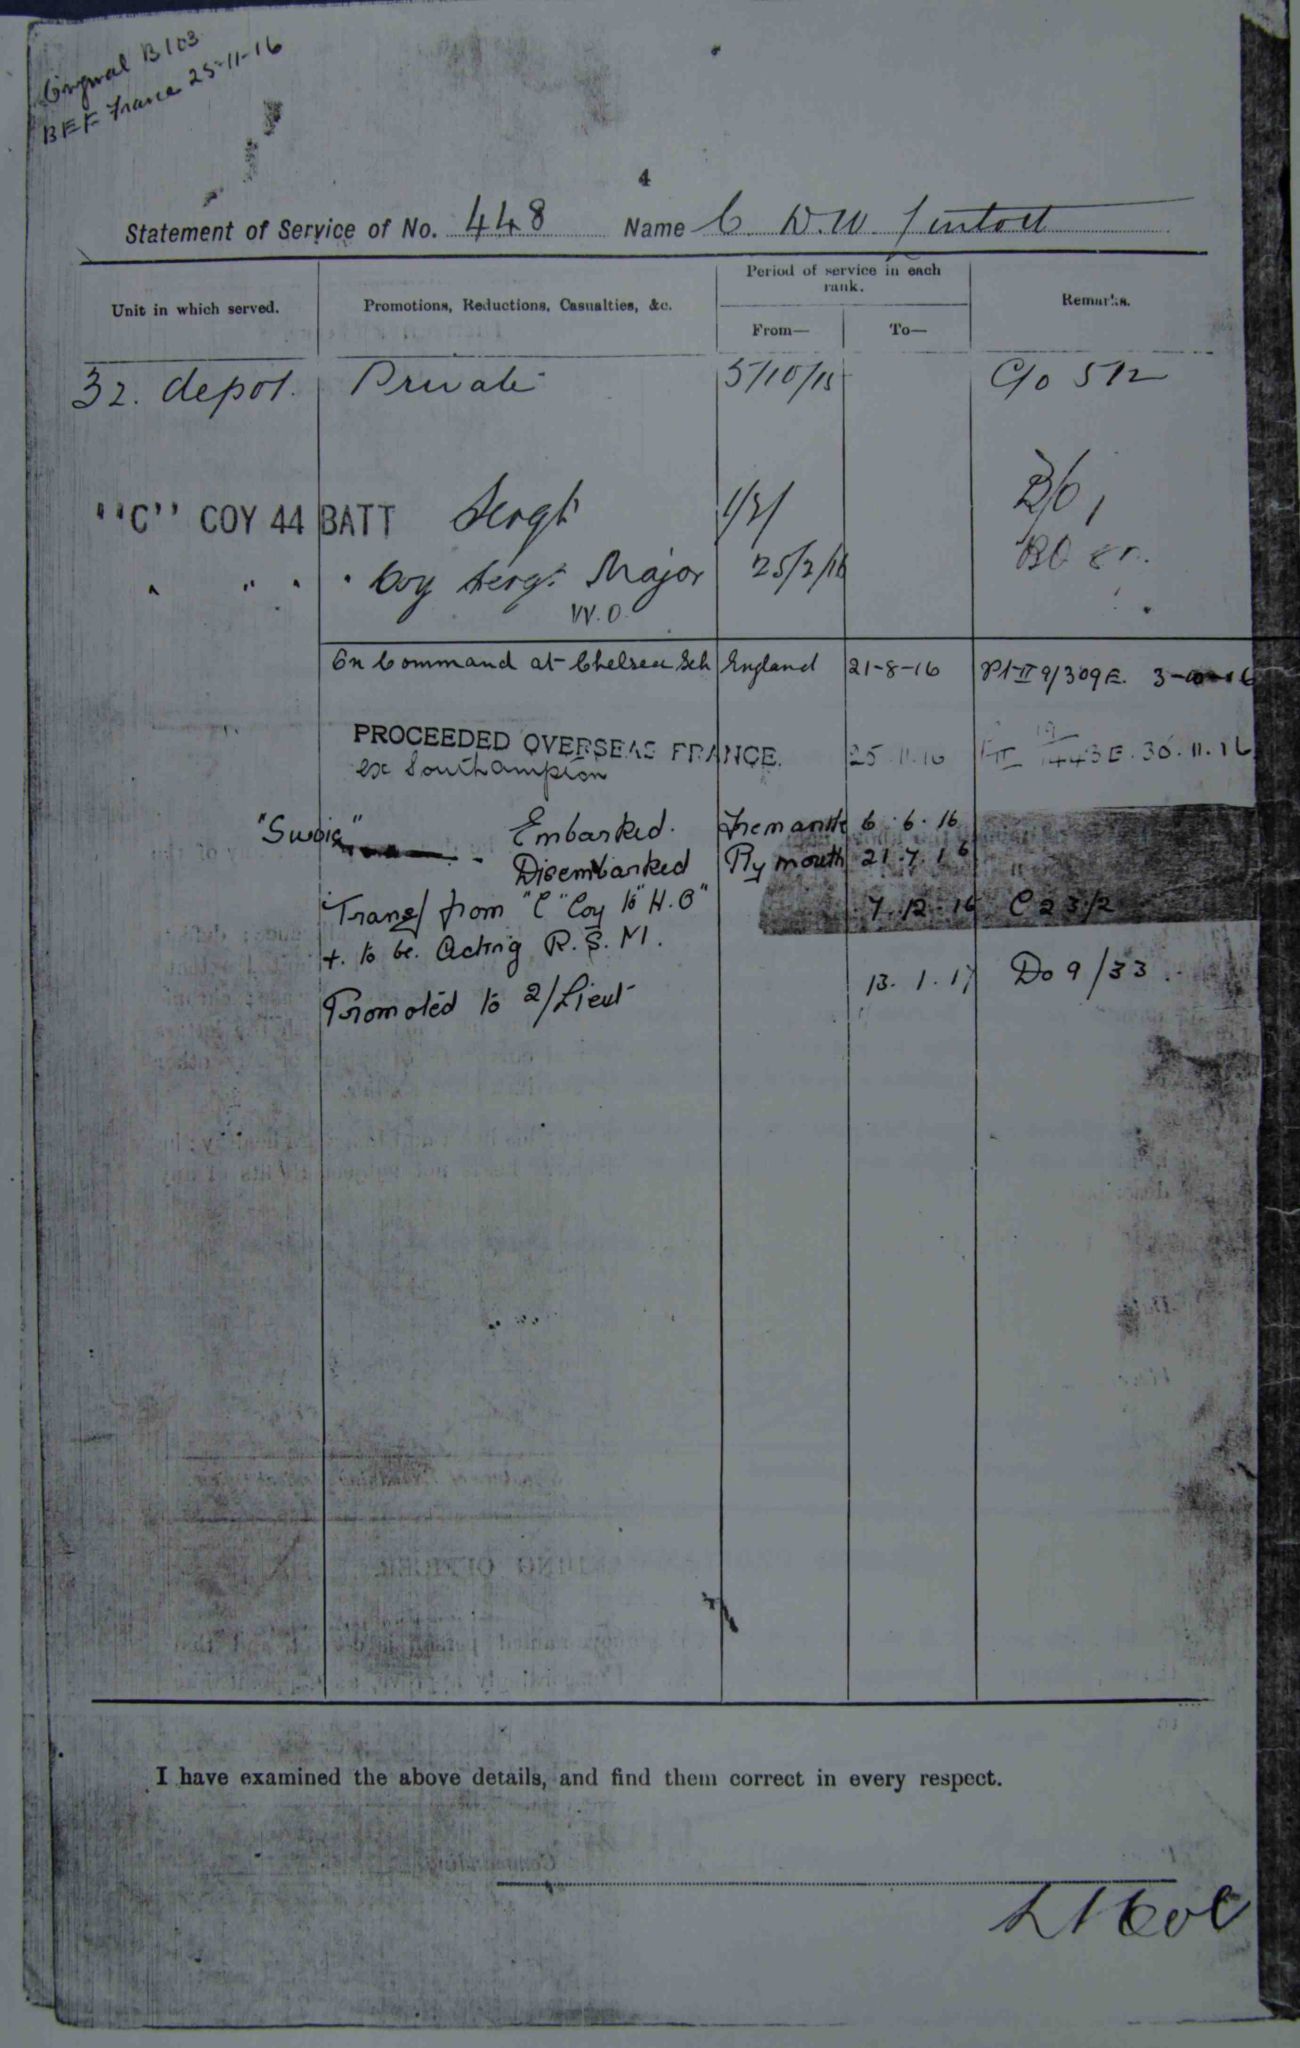 Original B103
BEF France 25-11-16
4
Statement of Service of No. 448 Name C. D.W. Lintott
Unit in which served. Promotions, Reductions, Casualties, &c. Period of service in each rank. Remarks.
From— To—
32. depot. Private 5/10/15 C/o 512
"C" COY 44 BATT Sergt 1/2/
" " " " Coy Sergt Major 25/2/16
W.O.
On Command at Chelsea Sch England 21-8-16 Pt II 9/309E.
PROCEEDED OVERSEAS FRANCE. 25.11.16 1443E. 30.11.16
ex Southampton
Embarked. Fremantle 6.6.16
Disembarked Plymouth 21.7.16
Transf from "C" Coy to "H.Q" 7.12.16 C 23/2
+ to be Acting R.S.M.
Promoted to 2/Lieut 13.1.17 Do 9/33
I have examined the above details, and find them correct in every respect.
Lt Col